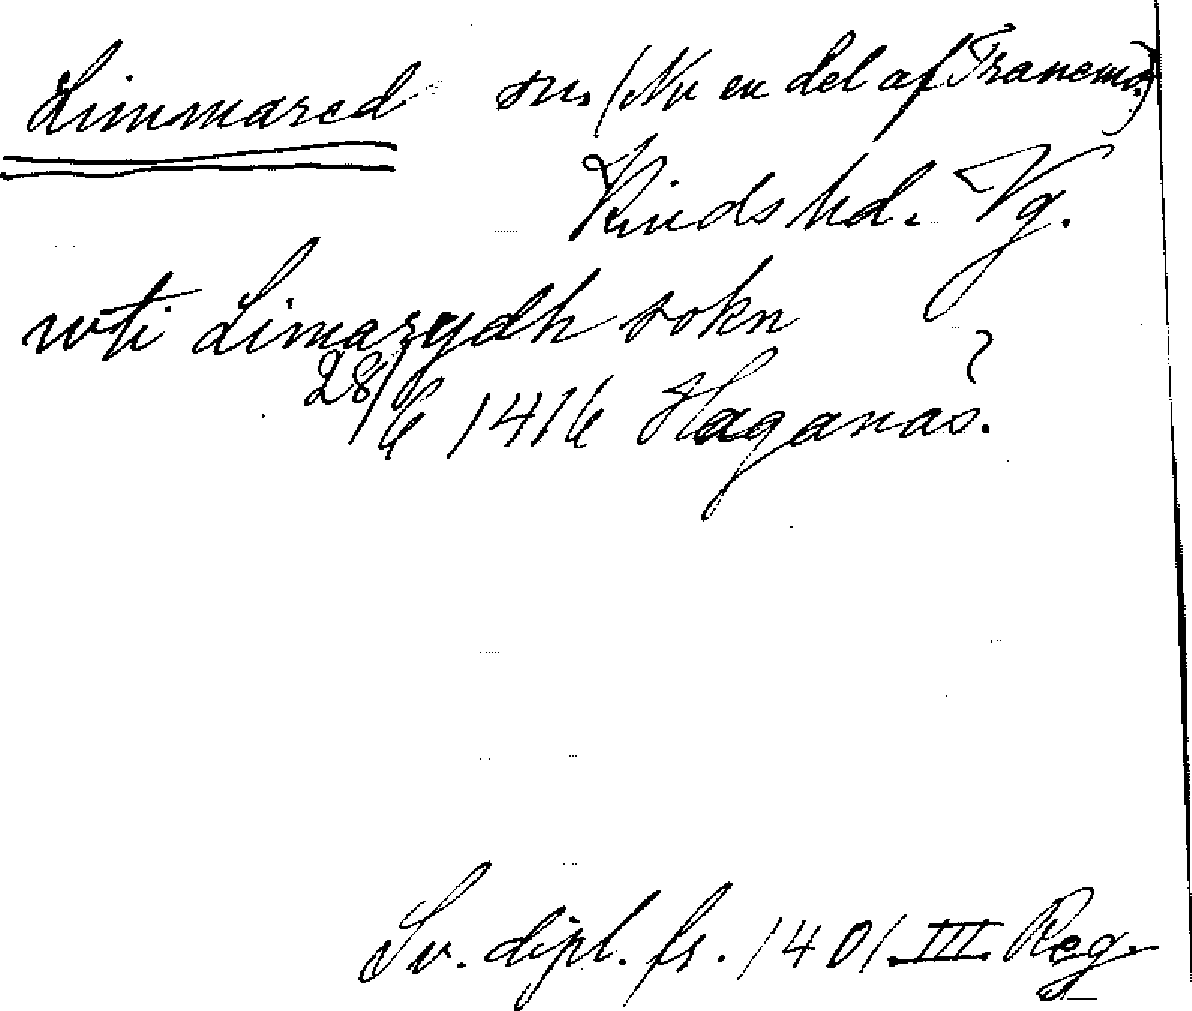 Limmared sn. (Nu en del af Tranemo)
Kinds hd. Vg.
wti Limarydh sokn
28/6 1416 Haganäs. ?
Sv. dipl. fr. 1401 III. Reg.